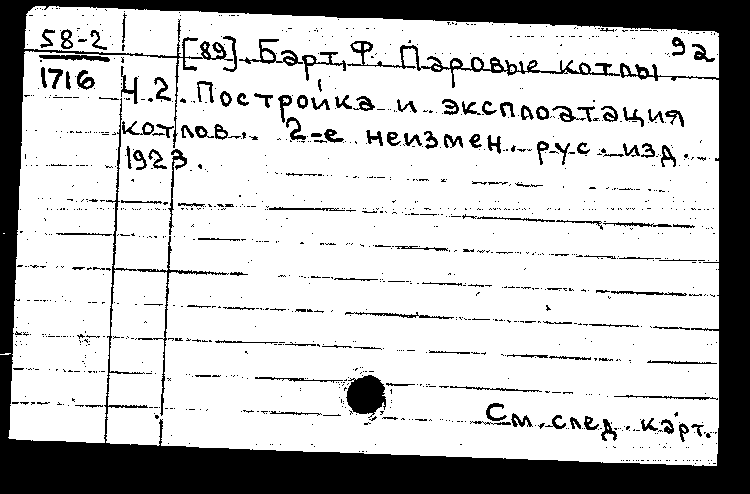 92
58-2
1716
[89]. Барт, Ф. Паровые котлы.
Ч.2. Постройка и эксплоатация
котлов. 2-е неизмен. рус. изд.
1923.
См. след. карт.